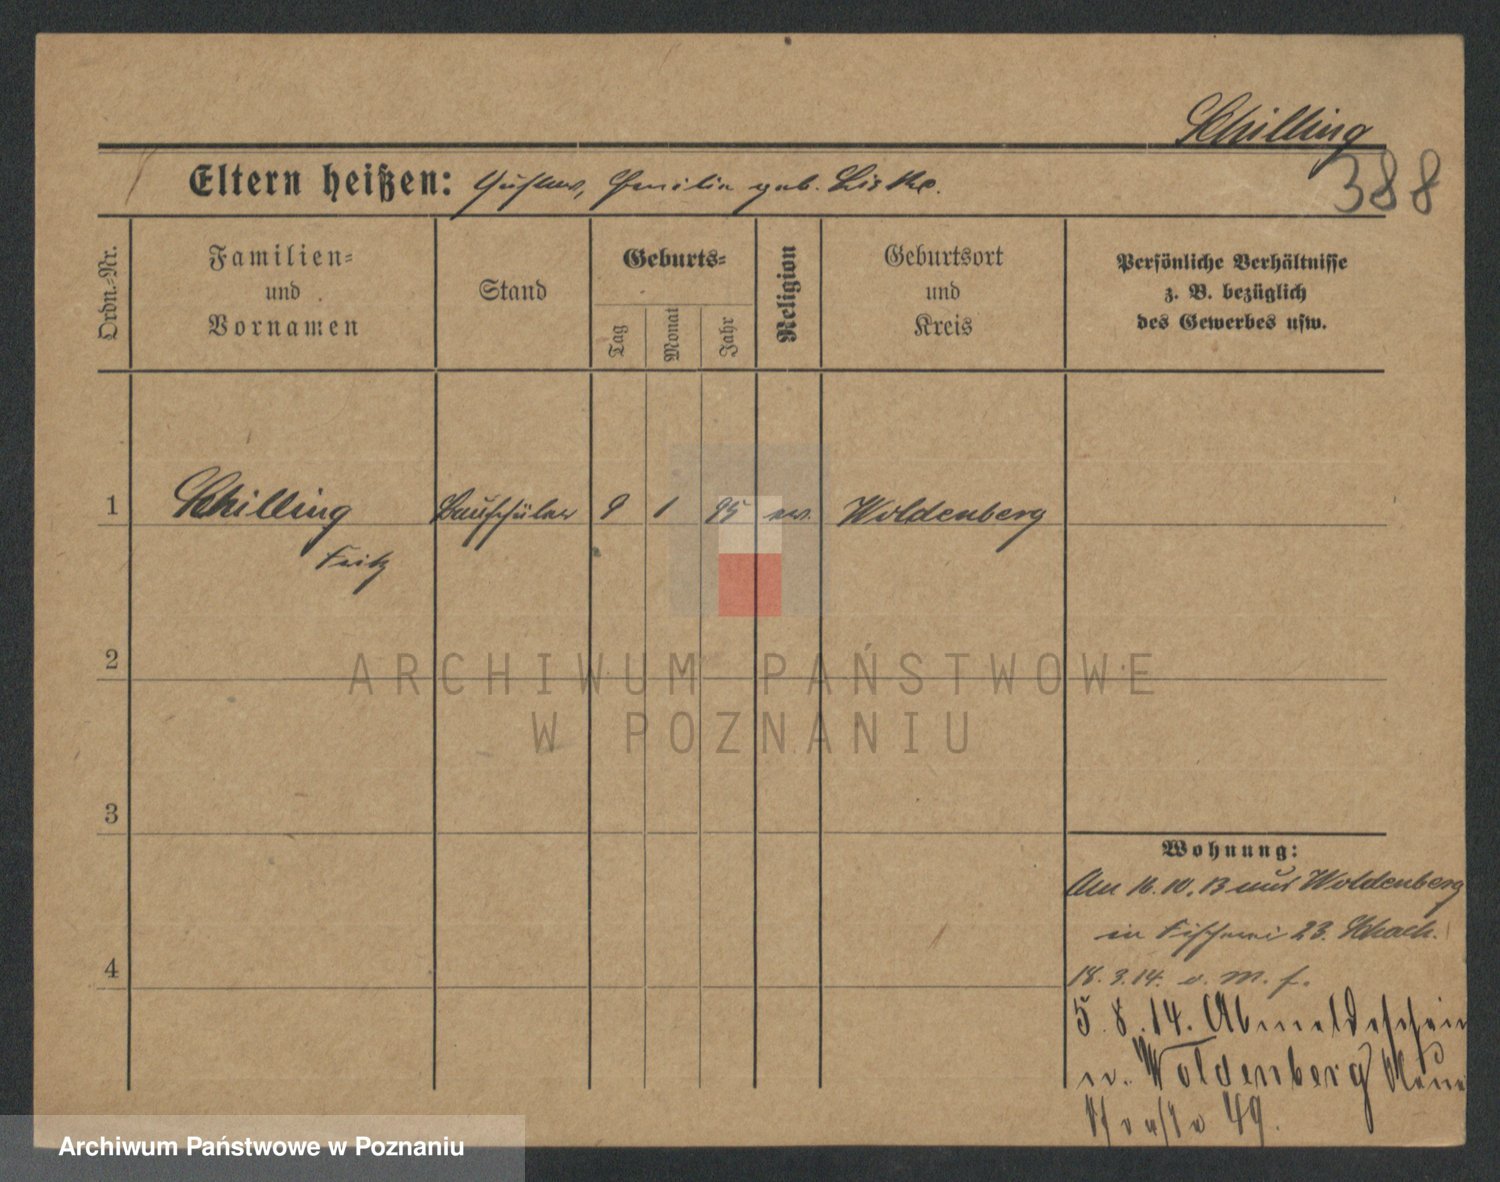 Schilling
388
Eltern heißen: Gustav, Emilie geb. Liske.
Ordn.-Nr.
Familien-
und
Vornamen
Stand
Geburts-
Tag
Monat
Jahr
Religion
Geburtsort
und
Kreis
Persönliche Verhältnisse
z. B. bezüglich
des Gewerbes usw.
1 Schilling Bauschüler 9 1 95 ev. Woldenberg
Fritz
2
3
4
Wohnung:
Am 16.10.13 aus Woldenberg
in Fischerei 23.
18.3.14. v. M. f.
5.8.14. Abmeldeschein
n. Woldenberg
49.
ARCHIWUM PAŃSTWOWE
W POZNANIU
Archiwum Państwowe w Poznaniu